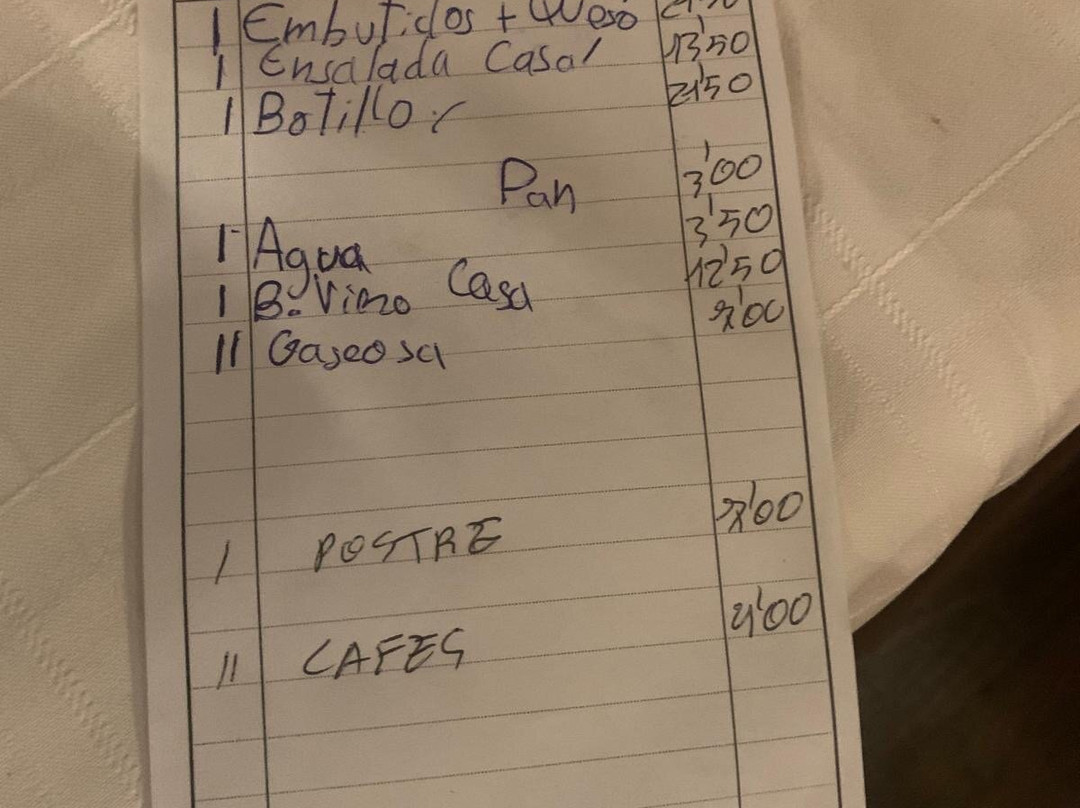 1 Embutidos + Queso
1 Ensalada Casa 13'50
1 Botillo 21'50
Pan 3'00
1 Agua 3'50
1 B. Vino Casa 12'50
11 Gaseosa
1 POSTRE 7'00
11 CAFES 4'00